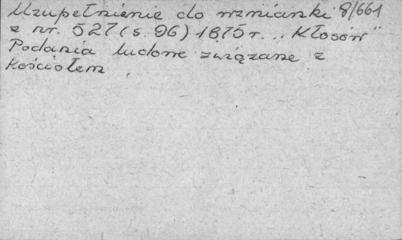 Uzupełnienie do wzmianki 8/661
z nr. 527 (s. 96) 1875 r. „Kłosów"
Podania ludowe związane z
kościołem